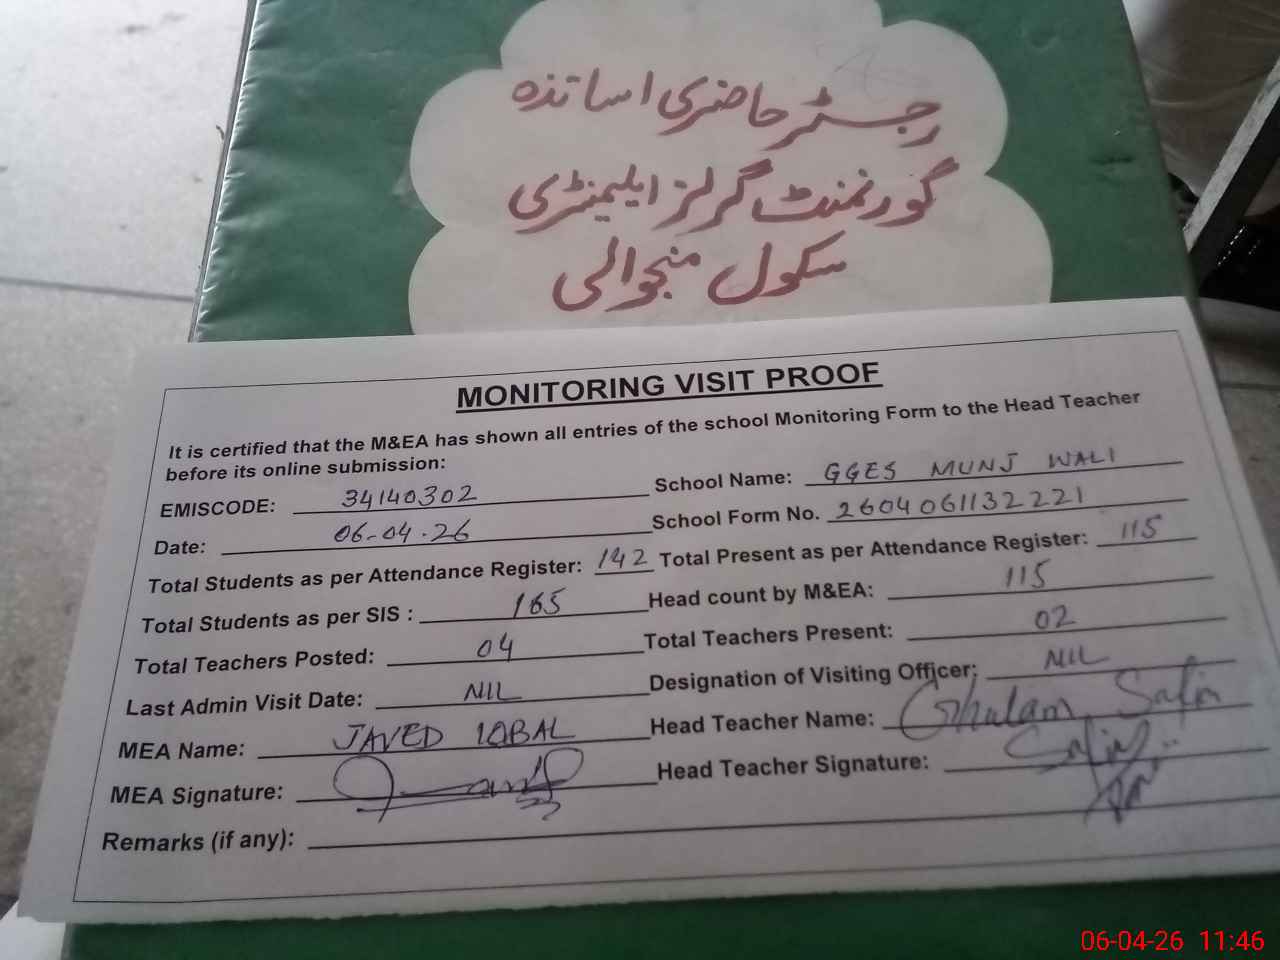 رجسٹر حاضری اساتذہ
گورنمنٹ گرلز ایلیمنٹری
سکول منجوالی
MONITORING VISIT PROOF
It is certified that the M&EA has shown all entries of the school Monitoring Form to the Head Teacher
before its online submission:
EMISCODE: 34140302 School Name: GGES MUNJ WALI
Date: 06-04-26 School Form No. 2604061132221
Total Students as per Attendance Register: 142 Total Present as per Attendance Register: 115
Total Students as per SIS : 165 Head count by M&EA: 115
Total Teachers Posted: 04 Total Teachers Present: 02
Last Admin Visit Date: NIL Designation of Visiting Officer: NIL
MEA Name: JAVED IQBAL Head Teacher Name: Ghulam
MEA Signature: Head Teacher Signature:
Remarks (if any):
06-04-26 11:46